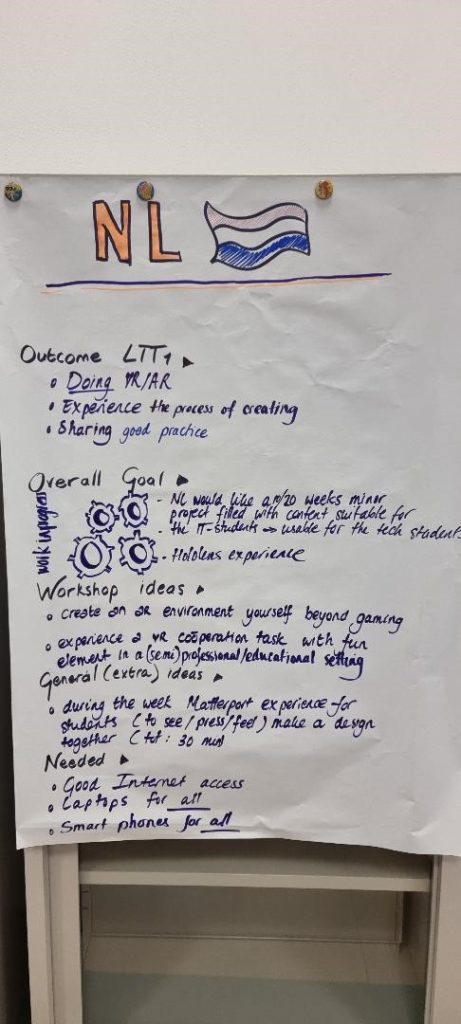 NL
Outcome LTT1
• Doing VR/AR
• Experience the process of creating
• Sharing good practice
Overall Goal
work in progress
- NL would like a 10/20 weeks minor
project filled with content suitable for
- the IT-students → usable for the tech students
- Hololens experience
Workshop ideas
• create an AR environment yourself beyond gaming
• experience a VR coöperation task with fun
element in a (semi)professional/educational setting
General (extra) ideas
• during the week Matterport experience for
students (to see/press/feel) make a design
together (tot: 30 min)
Needed
• Good Internet access
• Laptops for all
• Smart phones for all